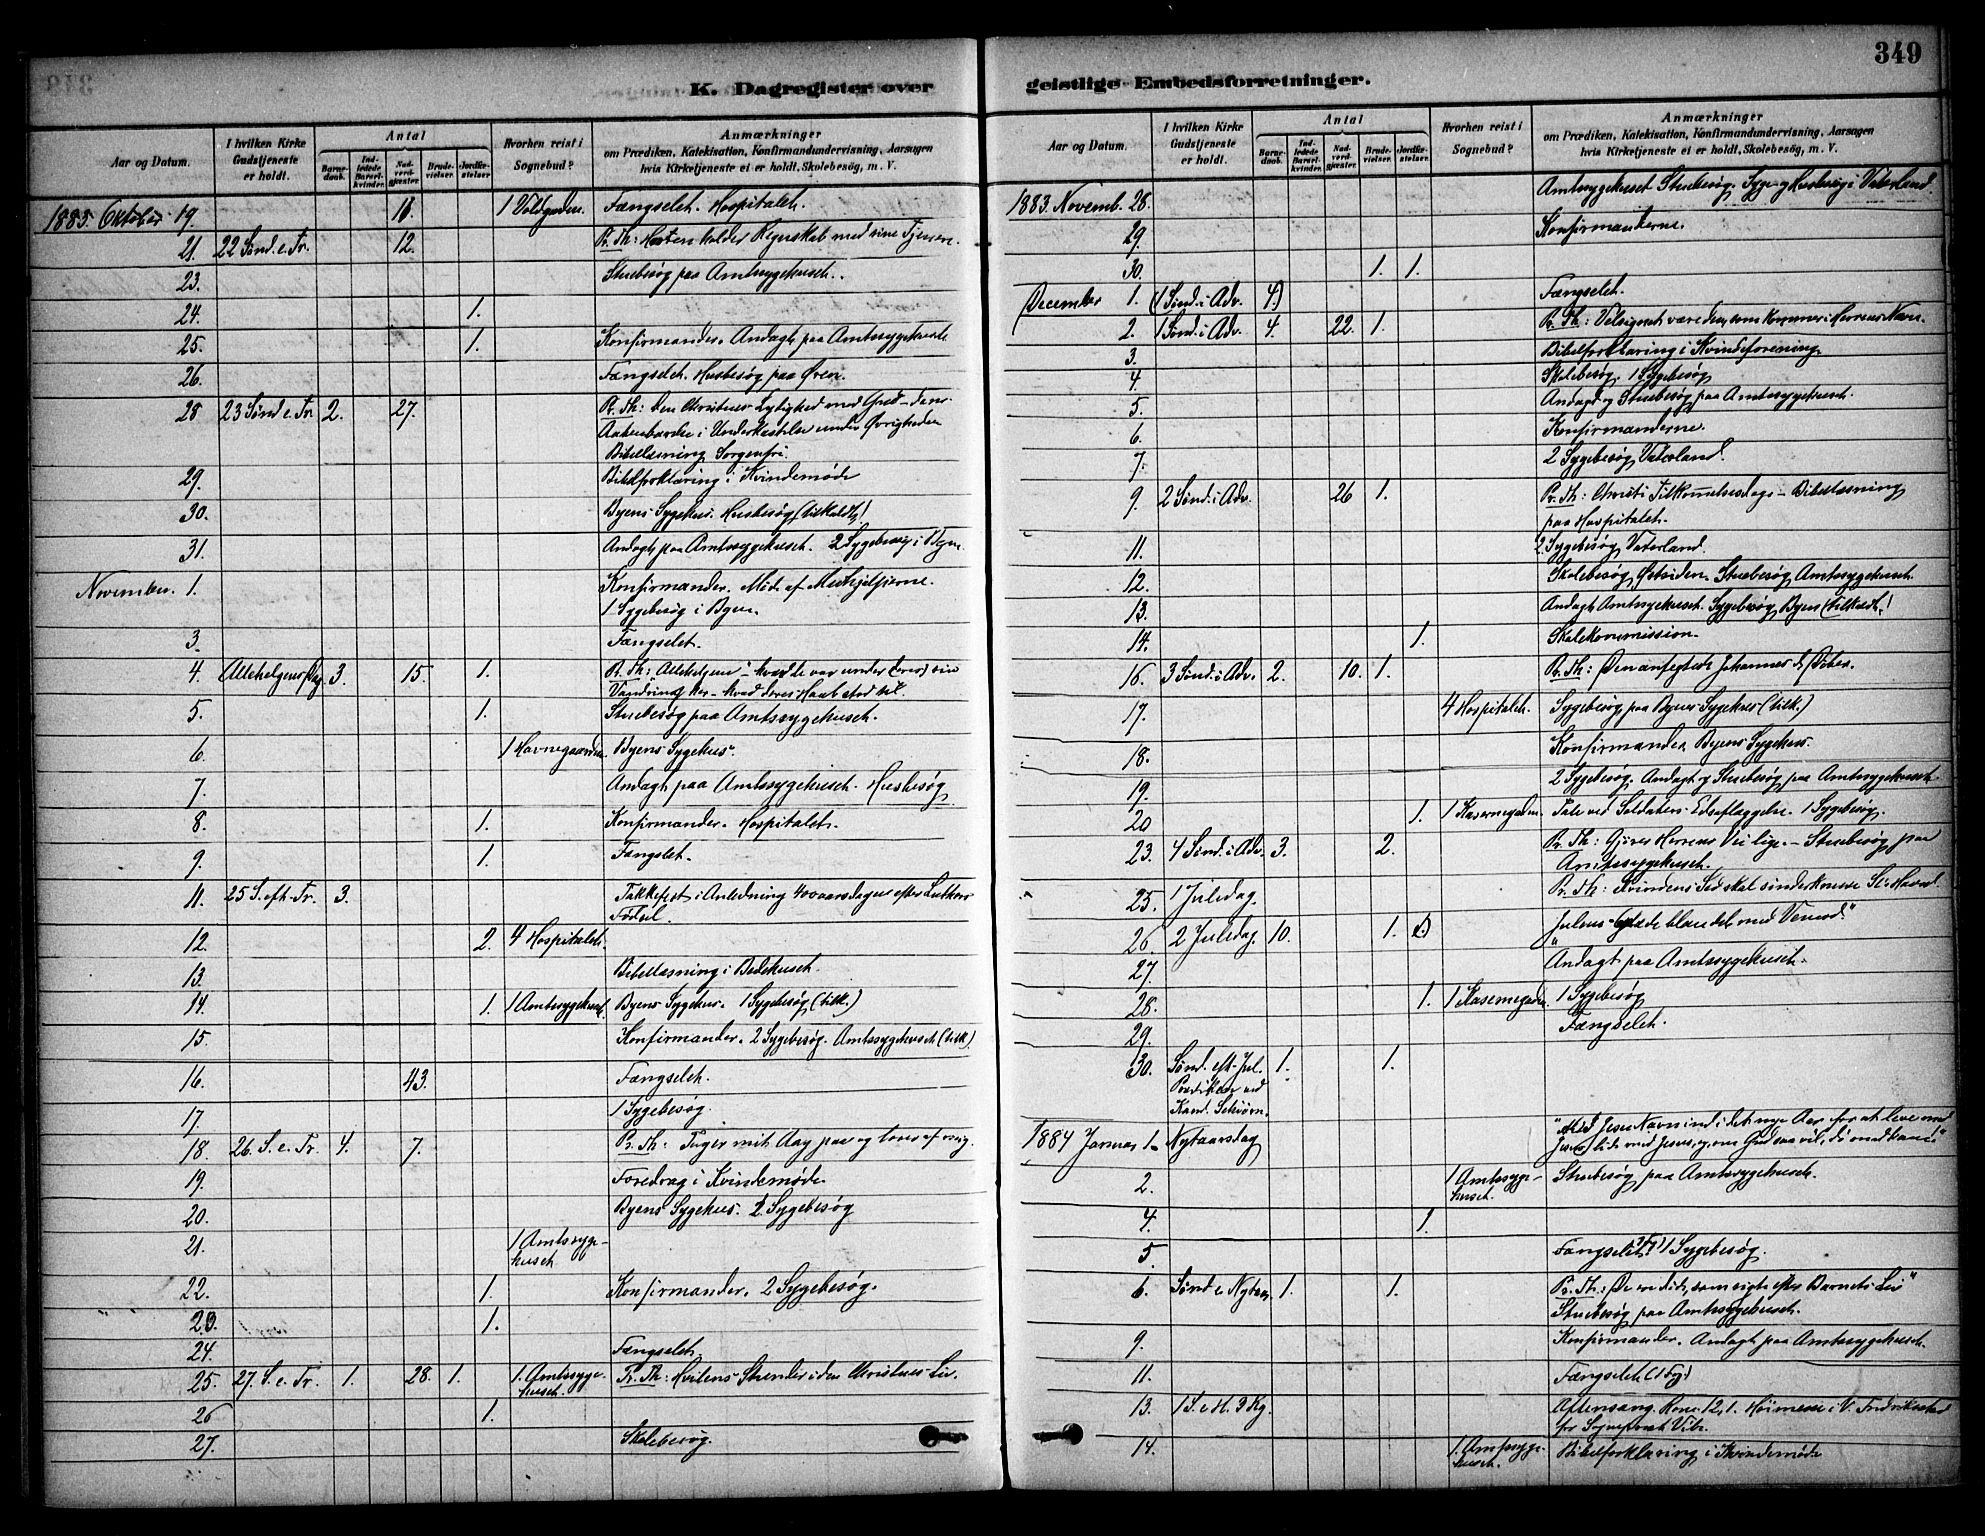 349
K. Dagregister over
geistlige Embedsforretninger.
Aar og Datum.
I hvilken Kirke Gudstjeneste er holdt.
Antal
Barnedaab.
Indledede Barselkvinder.
Nadverdgjæster.
Brudevielser.
Jordfæstelser.
Hvorhen reist i Sognebud?
Anmærkninger
om Prædiken, Katekisation, Konfirmandundervisning, Aarsagen
hvis Kirketjeneste ei er holdt, Skolebesøg, m. V.
1883. Oktober 19. 11. 1 Voldgaden. Fængselet. Hospitalet.
21. 22 Sønd. e. Tr. 12. Pr. Th: Herren holder Regnskab med sine Tjenere.
23. Stuebesøg paa Amtssygehuset.
24. 1.
25. 1. Konfirmander. Andagt paa Amtssygehuset
26. Fængselet. Husbesøg paa Øren.
28 23 Sønd e. Tr 2. 27. Pr. Th: Den Christnes Lydighed mod Gud - dens
Aabenbarelse i Underkastelse under Øvrigheden
Bibellæsning Sorgenfri.
29. Bibelforklaring i Kvindemøde
30. Byens Sygehus. Husbesøg (tilkaldt!)
31. Andagt paa Amtssygehuset. 2 Sygebesøg i Byen.
November. 1. Konfirmander. Møde af Menighjelperne.
1 Sygebesøg i Byen.
3. Fængselet.
4. Allehelgens Dag 3. 15. 1. Pr. Th: Allehelgene - hvad de var under deres
Vandring her - hvad deres Haab stod til.
5. 1. Stuebesøg paa Amtssygehuset.
6. 1 Havnegaarden. Byens Sygehus.
7. Andagt paa Amtssygehuset. Husbesøg
8. 1. Konfirmander. Hospitalet.
9. 1. Fængslet.
11. 25 S. eft. Tr. 3. Takkefest i Anledning 400aarsdagen efter Luthers
Fødsel.
12. 2. 4 Hospitalet.
13. Bibellæsning i Bedehuset.
14. 1. 1 Amtssygehuset. Byens Sygehus. 1 Sygebesøg (tilk.)
15. Konfirmander. 2 Sygebesøg. Amtssygehuset (tilk)
16. 43. Fængselet.
17. 1 Sygebesøg.
18. 26. S. e. Tr. 4. 7. Pr. Th: Tager mit Aag paa og lærer af mig.
19. Foredrag i Kvindemøde.
20. Byens Sygehus. 2 Sygebesøg
21. 1 Amtssyge-
huset
22. 1. Konfirmander. 2 Sygebesøg.
23. 1.
24. Fængselet.
25. 27. S. e. Tr. 1. 28. 1. 1. Amtssyge-
huset. Pr. Th: Hvilens Stunder i den Christnes Liv.
26 1.
27. Skolebesøg.
Aar og Datum.
I hvilken Kirke Gudstjeneste er holdt.
Antal
Barnedaab.
Indledede Barselkvinder.
Nadverdgjæster.
Brudevielser.
Jordfæstelser.
Hvorhen reist i Sognebud?
Anmærkninger
om Prædiken, Katekisation, Konfirmandundervisning, Aarsagen
hvis Kirketjeneste ei er holdt, Skolebesøg, m. V.
1883. Novemb. 28. Amtssygehuset Stuebesøg. Syge- og Husbesøg i Vaterland.
29. Konfirmanderne.
30. 1. 1.
December 1. (1 Sønd. i Adv. 4.) Fængselet.
2. 1 Sønd. i Adv. 4. 22. 1. Pr. Th: Velsignet være den, som kommer i Herrens Navn.
3. Bibelforklaring i Kvindeforening.
4. Skolebesøg. 1 Sygebesøg
5. Andagt og Stuebesøg paa Amtssygehuset.
6. Konfirmanderne.
7. 2 Sygebesøg Vaterland.
9. 2 Sønd. i Adv. 26 1. Pr. Th: Christi Tilkommelsesdag - Bibellæsning
paa Hospitalet.
11. 2 Sygebesøg Vaterland.
12. Skolebesøg Østsiden. Stuebesøg Amtssygehuset.
13. Andagt Amtssygehuset. Sygebesøg Byens (tilkaldt!)
14. 1. Skolekommission.
16. 3 Sønd. i Adv. 2. 10. 1. Pr. Th: Den anfegtede Johannes d. Døber.
17. 4 Hospitalet. Sygebesøg paa Byens Sygehus (tilk.)
18. Konfirmander. Byens Sygehus.
19. 2 Sygebesøg. Andagt og Stuebesøg paa Amtssygehuset.
20 1. 1 Kasernegaden. Tale ved Soldaters Edsaflæggelse. 1 Sygebesøg.
23. 4 Sønd. i Adv. 3. 2. Pr. Th: Gjører Herrens Vei lige. - Stuebesøg paa
Amtssygehuset.
25. 1 Juledag. Pr. Th: Kvindens Sæd skal sønderknuse Sl: Hoved.
26 2 Juledag. 10. 1. "Julens Glæde blandet med Vemod."
27. Andagt paa Amtssygehuset.
28. 1. 1 Kasernegaden. 1 Sygebesøg
29. Fængselet.
30. Sønd. eft. Jul. 1. 1.
Prædiken ved
Kand. Schiørn.
1884 Januar 1. Nytaarsdag "Med Jesu Navn ind i det nye Aar, for at leve med
Jesus, lide med Jesus, og, om Gud saa vil, dø med ham!"
2. 1 Amtssyge-
huset. Stuebesøg paa Amtssygehuset.
4. 1.
5. Fængselet 1 Sygebesøg.
6. Sønd e Nytaar. 1. 1. Pr. Th: De ere døde, som søgte efter Barnets Liv"
Stuebesøg paa Amtssygehuset.
9. Konfirmander. Andagt paa Amtssygehuset.
11. Fængselet
13. 1 S. e. H. 3 Kg. Aftensang. Rom. 12, 1. Høimesse i V. Fredrikstad
for Sogneprest Vibe.
14. 1. Amtssyge-
huset. Bibelforklaring i Kvindemøde